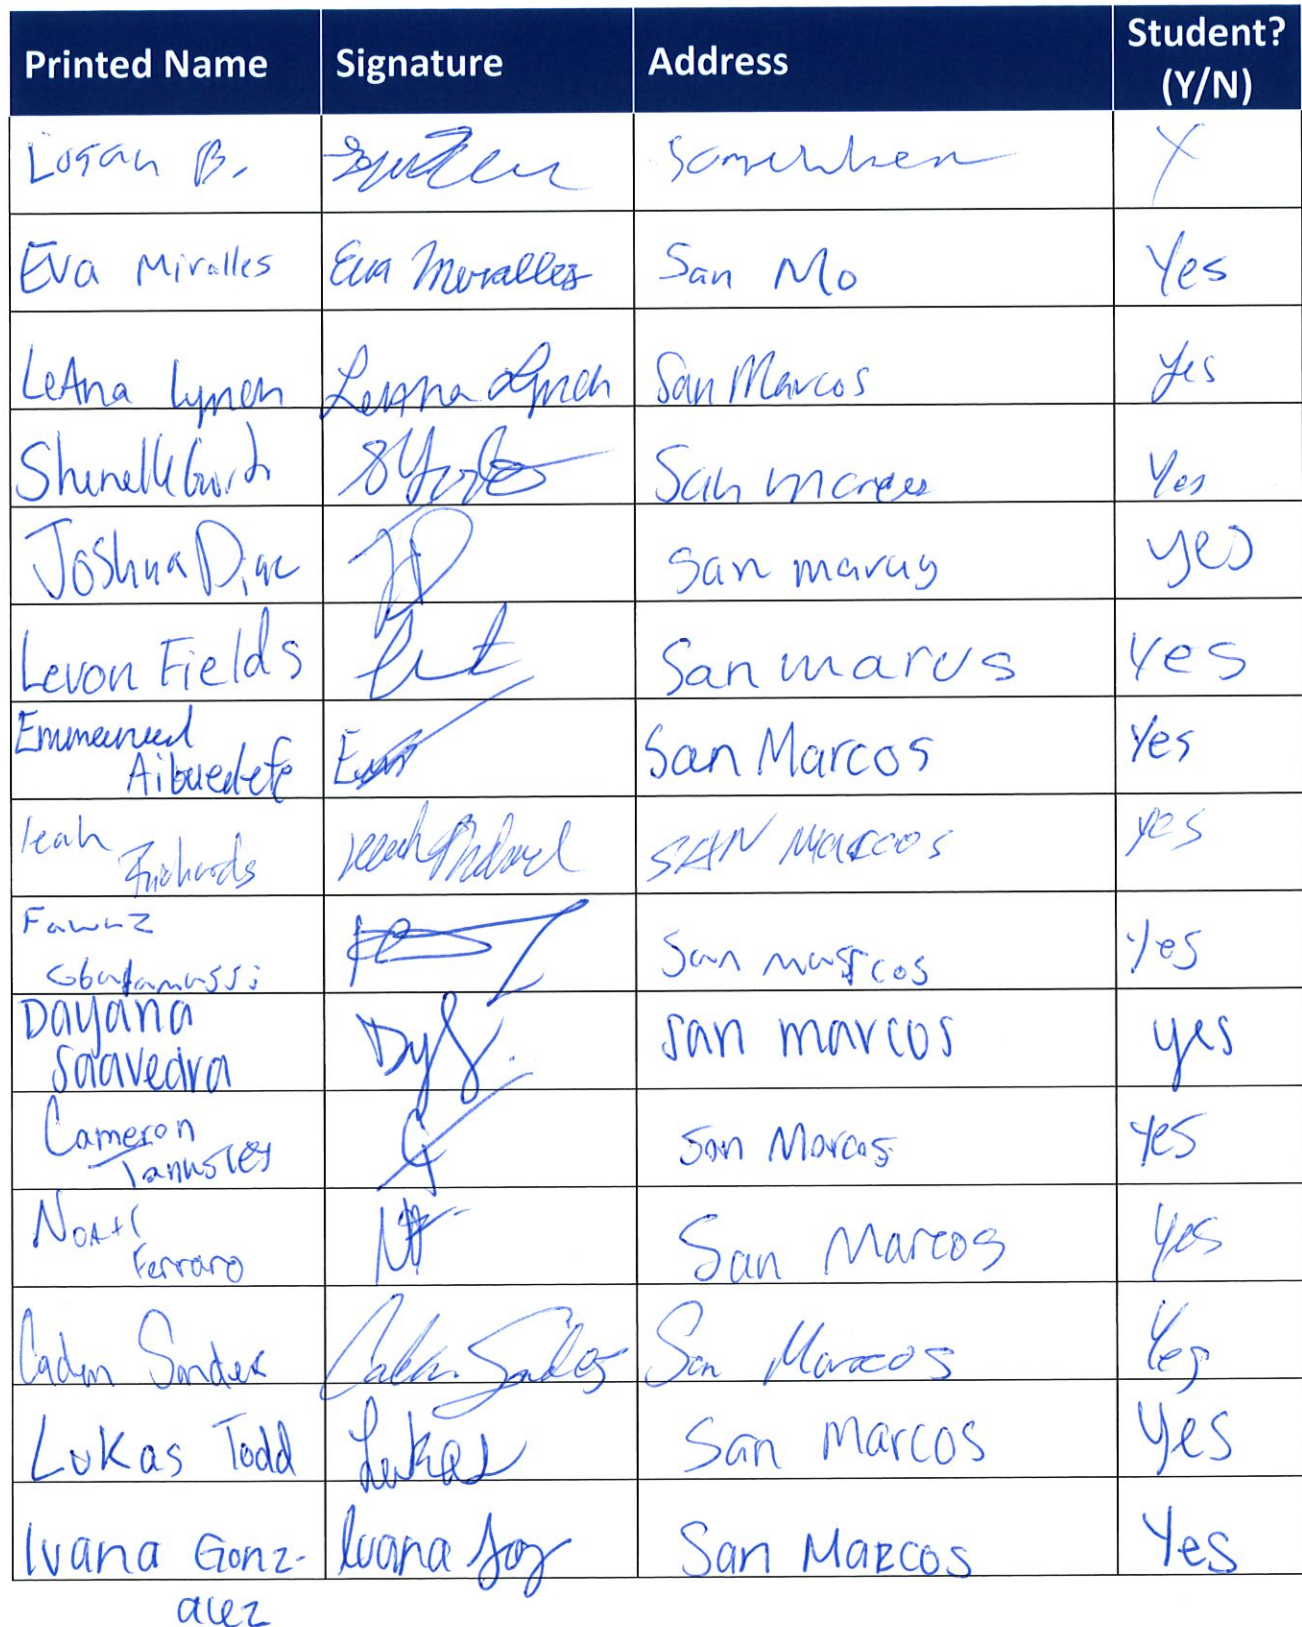 Printed Name Signature Address Student? (Y/N)
Logan B. Somewhere Y
Eva Miralles Eva Miralles San Mo Yes
LeAna Lynch LeAna Lynch San Marcos Yes
Shenelle San marcos Yes
Joshua Diaz JD San marcus yes
Levon Fields San marcus Yes
Emmanuel
Aibuedefe San Marcos Yes
leah
Richards SAN MARCOS yes
Fawaz
San marcos Yes
Dayana
Saavedra DyS. san marcos yes
Cameron
Tannsley San Marcos yes
Noah
Ferraro NF San Marcos Yes
Caden Sandes San Marcos Yes
Lukas Todd Lukas San Marcos Yes
Ivana Gonz- Ivana San Marcos Yes
alez